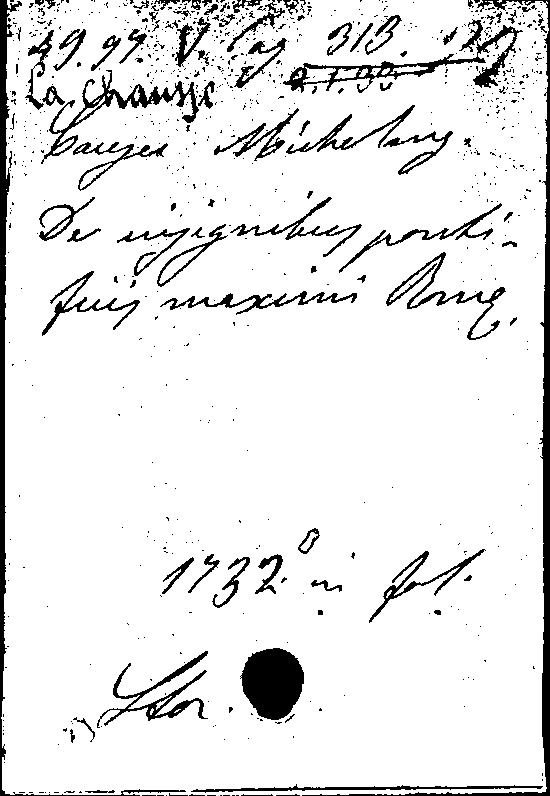 49.97. V. Cag 313.
2.1.33
La Chausse
Causeus Michelang.
De insignibus ponti-
ficis maximi Romę.
1732. in fol.
Stor.